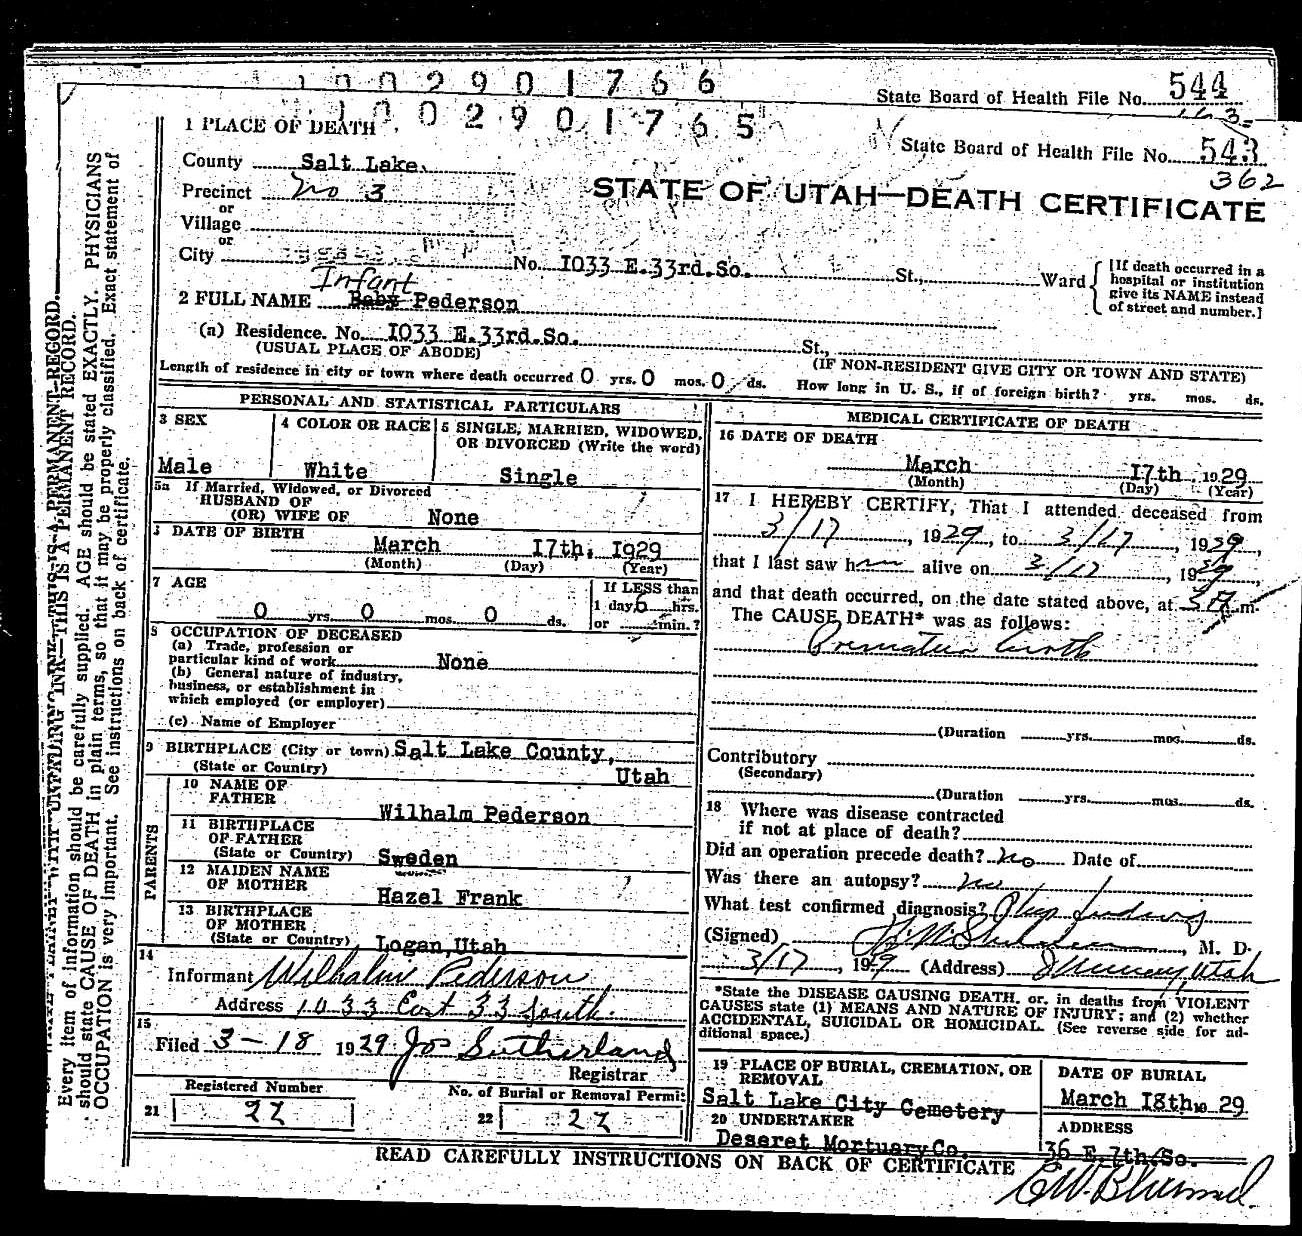 1002901766
State Board of Health File No. 544
1002901765
1 PLACE OF DEATH
State Board of Health File No. 543
362
County Salt Lake.
Precinct No 3
STATE OF UTAH—DEATH CERTIFICATE
or
Village
or
City No. 1033 E.33rd.So. St., Ward
[If death occurred in a hospital or institution give its NAME instead of street and number.]
Infant
2 FULL NAME Baby Pederson
(a) Residence. No. 1033 E.33rd.So. St.,
(USUAL PLACE OF ABODE) (IF NON-RESIDENT GIVE CITY OR TOWN AND STATE)
Length of residence in city or town where death occurred 0 yrs. 0 mos. 0 ds. How long in U. S., if of foreign birth? yrs. mos. ds.
PERSONAL AND STATISTICAL PARTICULARS
3 SEX
Male
4 COLOR OR RACE
White
5 SINGLE, MARRIED, WIDOWED, OR DIVORCED (Write the word)
Single
5a If Married, Widowed, or Divorced
HUSBAND OF
(OR) WIFE OF None
DATE OF BIRTH
March 17th. 1929
(Month) (Day) (Year)
7 AGE
0 yrs. 0 mos. 0 ds.
If LESS than
1 day, 6 hrs.
or min.?
8 OCCUPATION OF DECEASED
(a) Trade, profession or
particular kind of work None
(b) General nature of industry,
business, or establishment in
which employed (or employer)
(c) Name of Employer
9 BIRTHPLACE (City or town) Salt Lake County,
(State or Country) Utah
PARENTS
10 NAME OF
FATHER
Wilhalm Pederson
11 BIRTHPLACE
OF FATHER
(State or Country) Sweden
12 MAIDEN NAME
OF MOTHER
Hazel Frank
13 BIRTHPLACE
OF MOTHER
(State or Country) Logan, Utah
14
Informant Wilhalm Pederson
Address 1033 East 33 South.
15
Filed 3-18 1929 Jos Sutherland
Registrar
Registered Number
21 22
No. of Burial or Removal Permit
22 22
MEDICAL CERTIFICATE OF DEATH
16 DATE OF DEATH
March 17th. 1929
(Month) (Day) (Year)
17 I HEREBY CERTIFY, That I attended deceased from
3/17, 1929, to 3/17, 1929,
that I last saw him alive on 3/17, 1929,
and that death occurred, on the date stated above, at m.
The CAUSE DEATH* was as follows:
Premature birth
(Duration yrs. mos. ds.
Contributory
(Secondary)
(Duration yrs. mos. ds.
18 Where was disease contracted
if not at place of death?
Did an operation precede death? No Date of
Was there an autopsy? no
What test confirmed diagnosis?
(Signed) , M. D.
3/17, 1929 (Address) Murray, Utah
*State the DISEASE CAUSING DEATH, or, in deaths from VIOLENT
CAUSES state (1) MEANS AND NATURE OF INJURY; and (2) whether
ACCIDENTAL, SUICIDAL OR HOMICIDAL. (See reverse side for additional space.)
19 PLACE OF BURIAL, CREMATION, OR
REMOVAL
Salt Lake City Cemetery
DATE OF BURIAL
March 18th 19 29
20 UNDERTAKER
Deseret Mortuary Co.
ADDRESS
36 E.7th.So.
READ CAREFULLY INSTRUCTIONS ON BACK OF CERTIFICATE
UNFADING INK—THIS IS A PERMANENT RECORD.
Every item of information should be carefully supplied. AGE should be stated EXACTLY. PHYSICIANS
should state CAUSE OF DEATH in plain terms, so that it may be properly classified. Exact statement of
OCCUPATION is very important. See instructions on back of certificate.